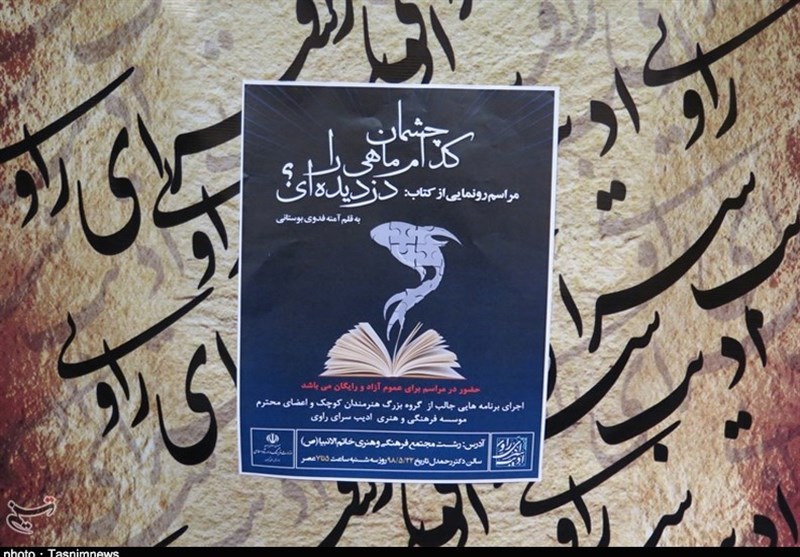 چشمان
کدام ماهی را
مراسم رونمایی از کتاب: دزدیده ای؟
به قلم آمنه فدوی بوستانی
حضور در مراسم برای عموم آزاد و رایگان می باشد
اجرای برنامه هایی جالب از گروه بزرگ هنرمندان کوچک و اعضای محترم
موسسه فرهنگی و هنری ادیب سرای راوی
آدرس: رشت مجتمع فرهنگی و هنری خاتم الانبیا (ص)
سالن دکتر رحمدل تاریخ ۹۸/۵/۲۲ روز سه شنبه ساعت ۵ تا ۷ عصر
photo : Tasnimnews